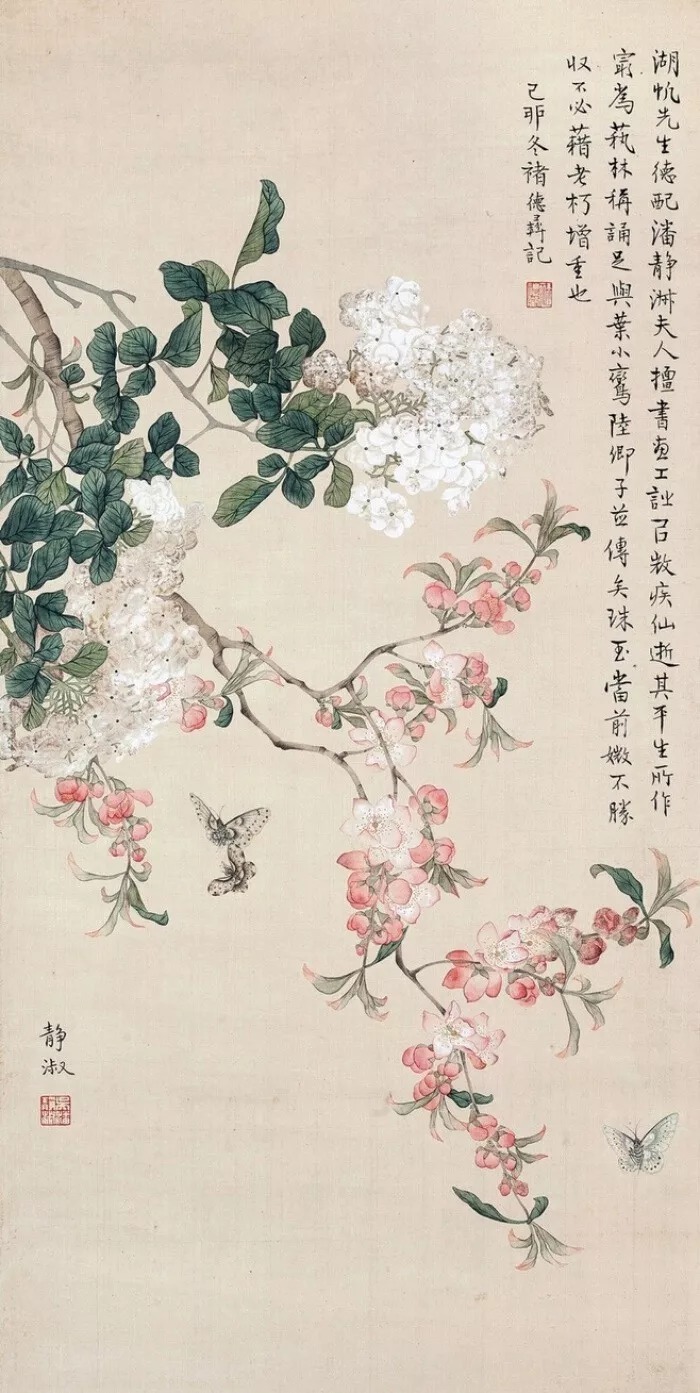 湖帆先生德配潘静淑夫人擅書画工詞㠯微疾仙逝其平生所作
冣為藝林稱誦足與葉小鸞陸卿子並傳矣珠玉當前媺不勝
収不必藉老朽增重也
己卯冬褚德彝記
静淑